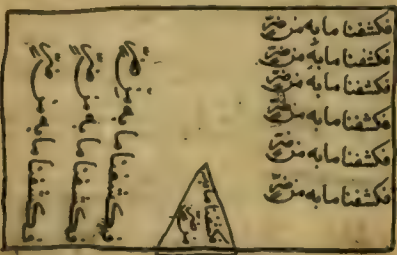 فكشفنا ما به من ضرّ
فكشفنا ما به من ضرّ
فكشفنا ما به من ضرّ
فكشفنا ما به من ضرّ
فكشفنا ما به من ضرّ
فكشفنا ما به من ضرّ
فكشفنا ما به من ضر
فكشفنا ما به من ضر
فكشفنا ما به من ضر